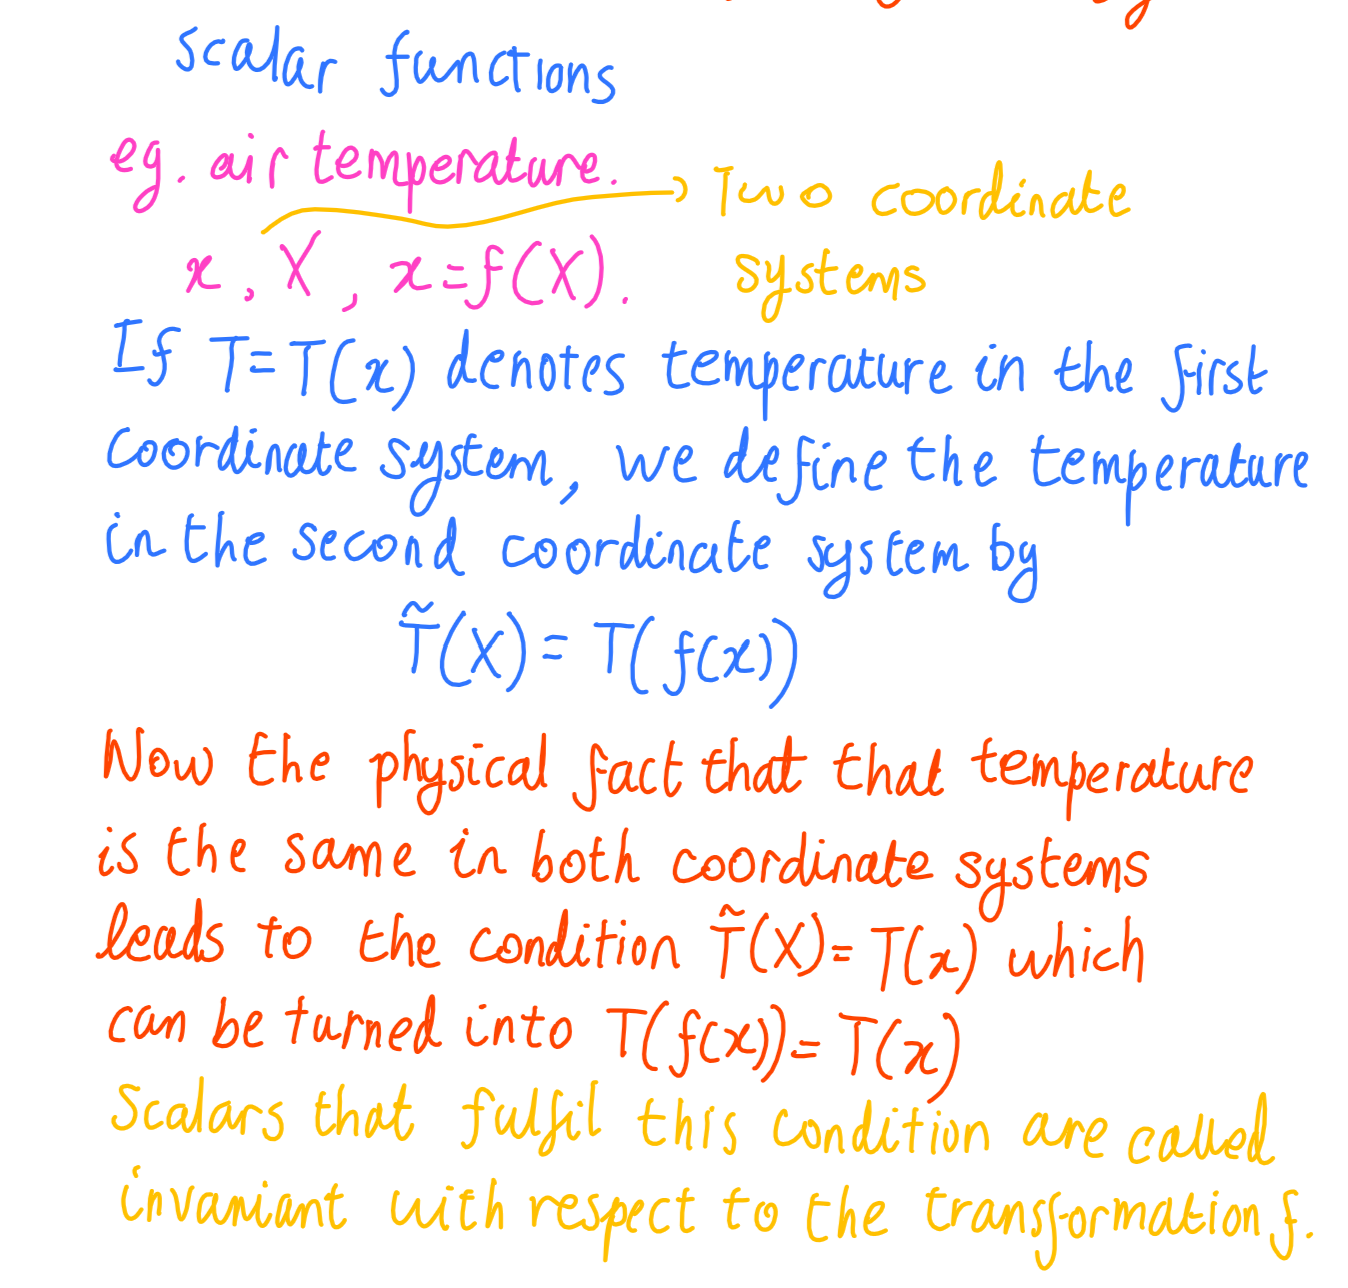 scalar functions
eg. air temperature.
Two coordinate
systems
x, X, x=f(X).
If T=T(x) denotes temperature in the first
coordinate system, we define the temperature
in the second coordinate system by
T̃(X) = T(f(x))
Now the physical fact that that temperature
is the same in both coordinate systems
leads to the condition T̃(X)= T(x) which
can be turned into T(f(x))= T(x)
Scalars that fulfil this condition are called
invariant with respect to the transformation f.